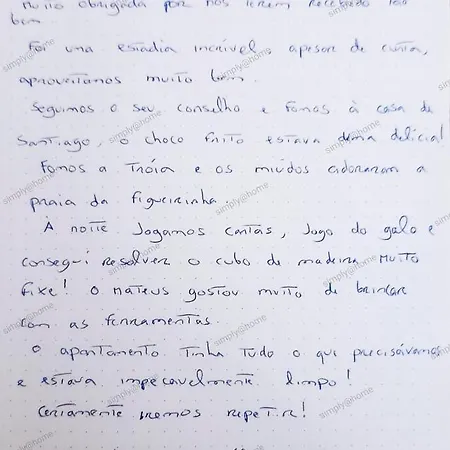 Muito obrigada por nos terem recebido tão
bem.
Foi uma estadia incrível, apesar de curta,
aproveitamos muito bem.
Seguimos o seu conselho e fomos à casa de
Santiago, o choco frito estava duma delícia!
Fomos a Tróia e os miudos adoraram a
praia da Figueirinha.
À noite Jogamos cartas, Jogo do galo e
consegui resolver o cubo de madeira. Muito
fixe! O Mateus gostou muito de brincar
com as ferramentas.
O apartamento tinha tudo o que precisávamos
e estava impecavelmente limpo!
Certamente iremos repetir!
simply@home